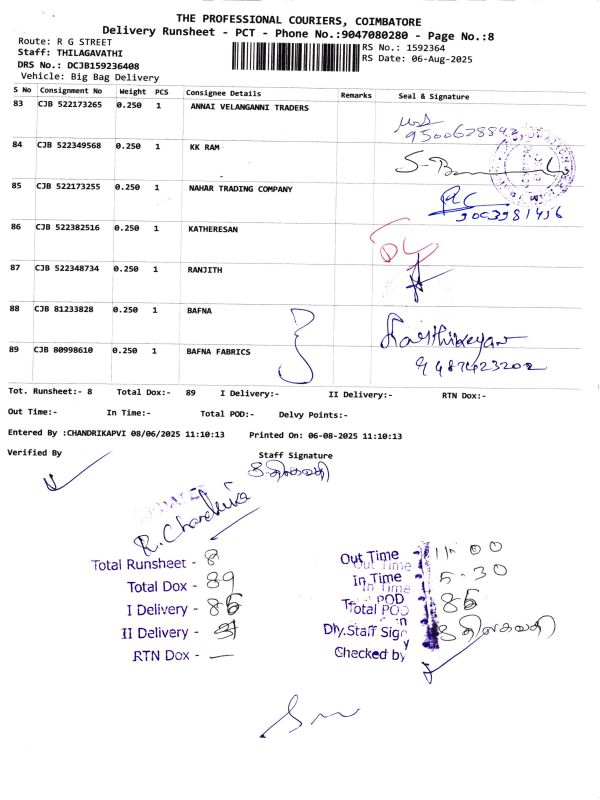 THE PROFESSIONAL COURIERS, COIMBATORE
Delivery Runsheet - PCT - Phone No.:9047080280 - Page No.:8
Route: R G STREET
RS No.: 1592364
Staff: THILAGAVATHI
RS Date: 06-Aug-2025
DRS No.: DCJB159236408
Vehicle: Big Bag Delivery
S No Consignment No Weight PCS Consignee Details Remarks Seal & Signature
83 CJB 522173265 0.250 1 ANNAI VELANGANNI TRADERS
84 CJB 522349568 0.250 1 KK RAM
85 CJB 522173255 0.250 1 NAHAR TRADING COMPANY
9003981456
86 CJB 522382516 0.250 1 KATHERESAN
87 CJB 522348734 0.250 1 RANJITH
88 CJB 81233828 0.250 1 BAFNA
Karthikeyan
89 CJB 80998610 0.250 1 BAFNA FABRICS
9487423202
Tot. Runsheet:- 8 Total Dox:- 89 I Delivery:- II Delivery:- RTN Dox:-
Out Time:- In Time:- Total POD:- Delvy Points:-
Entered By :CHANDRIKAPVI 08/06/2025 11:10:13 Printed On: 06-08-2025 11:10:13
Verified By Staff Signature
திலகவதி
R. Chandrika
Total Runsheet - 8
Total Dox - 89
I Delivery - 86
II Delivery - 3
RTN Dox - —
Out Time - 11.00
In Time - 5.30
Total POD 86
Dly.Staff Sign திலகவதி
Checked by